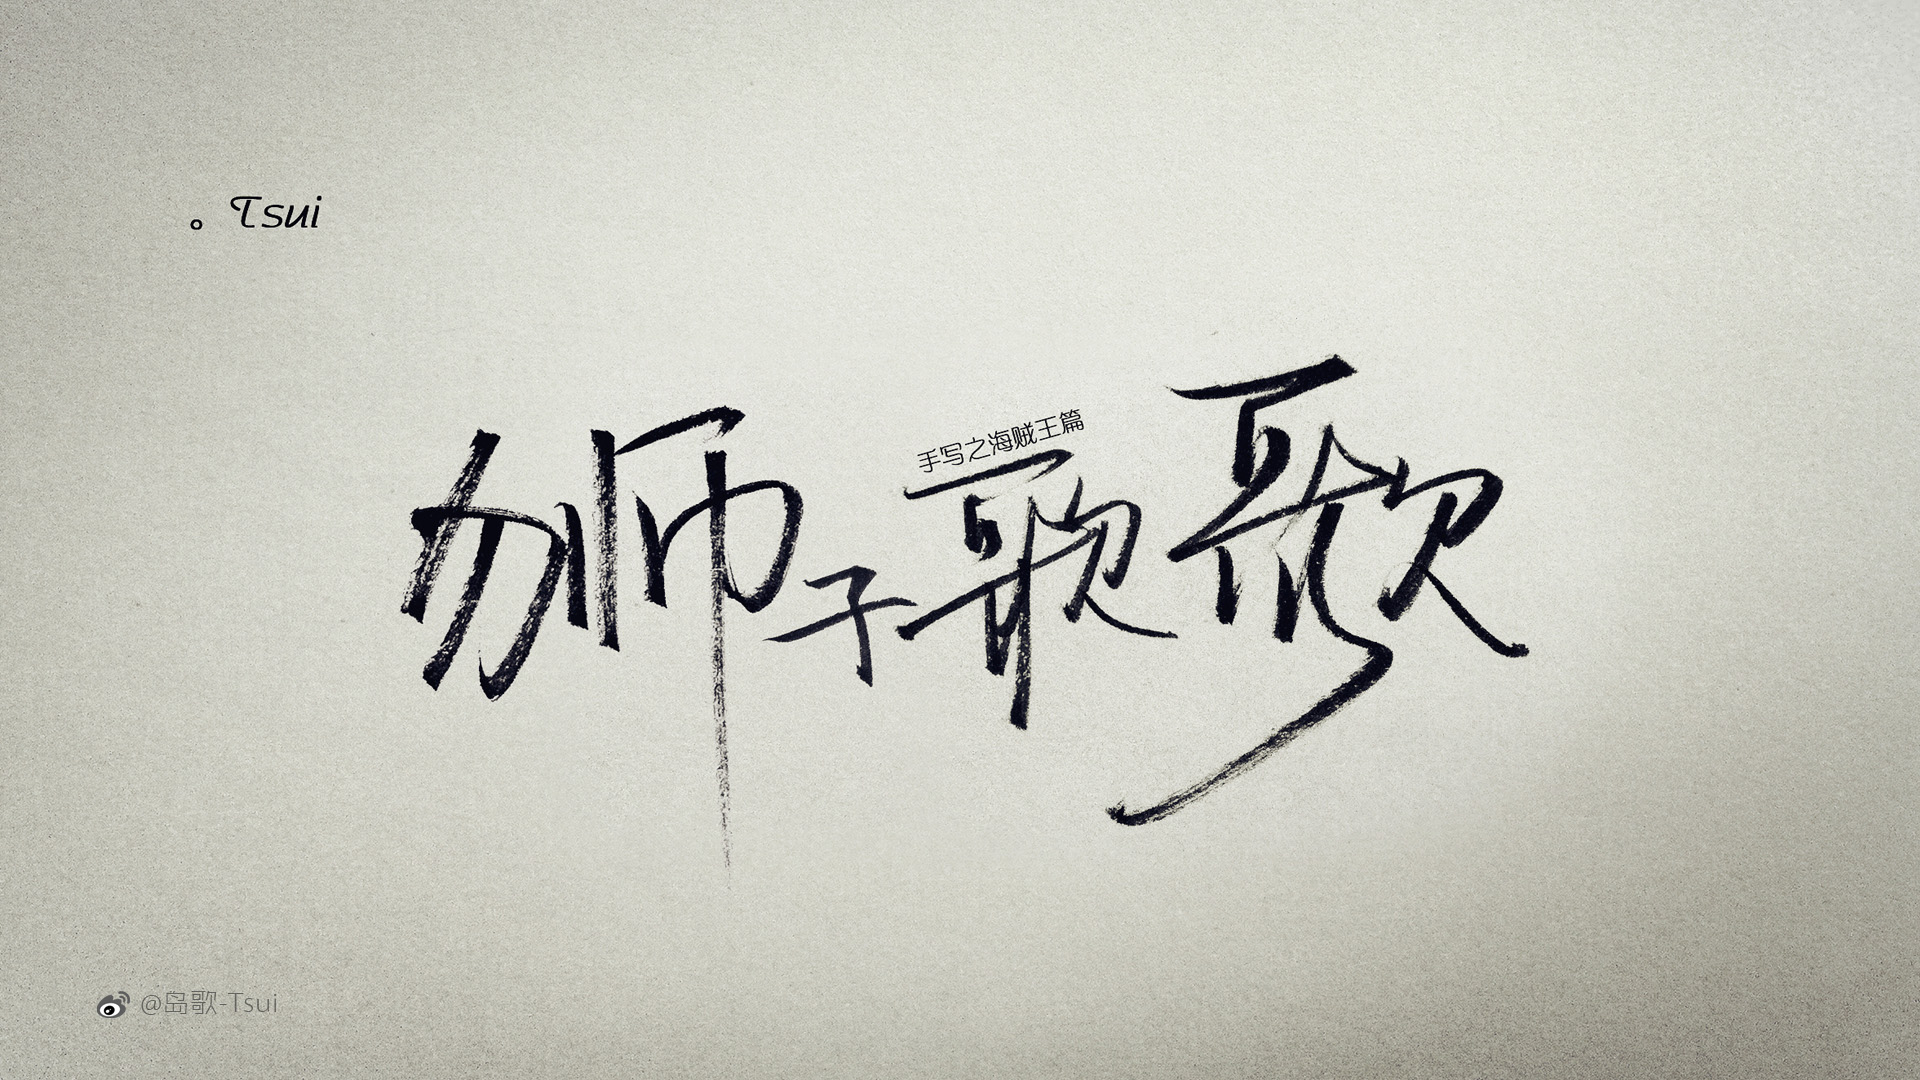 。Tsui
手写之海贼王篇
狮子歌歌
@岛歌-Tsui